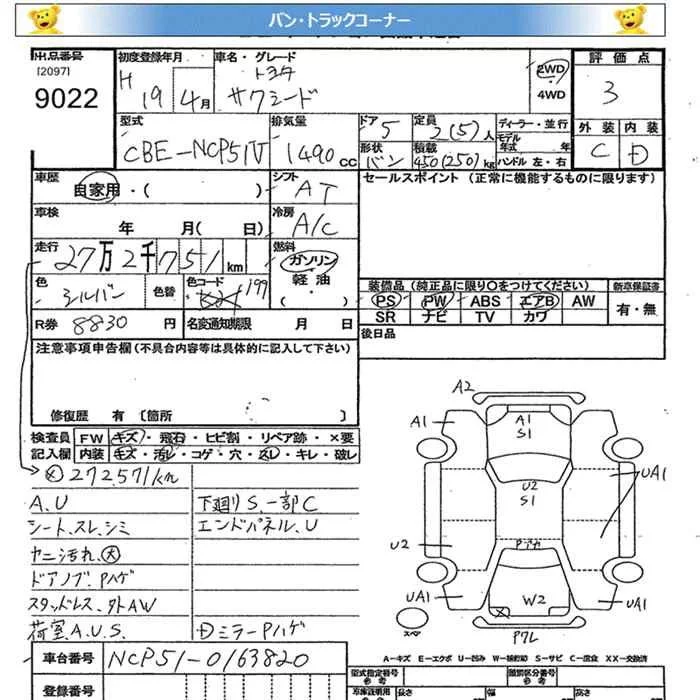 バン・トラックコーナー
出品番号 初度登録年月 車名・グレード 評価点
[2097]
9022
H 19 4月
トヨタ
サクシード
2WD
4WD
3
型式 排気量 ドア 定員 ディーラー・並行 外装 内装
CBE-NCP51V 1490cc 5 2(5)人 モデル年式 年 C D
形状 積載 ハンドル 左・右
バン 450(250)kg
車歴 シフト セールスポイント (正常に機能するものに限ります)
自家用・( ) AT
車検 冷房
年 月( 日) A/C
走行 27万2千751km 燃料 ガソリン 軽油
( )
色 シルバー 色替 色コード 199
装備品 (純正品に限り○をつけてください) 新車保証書
PS PW ABS エアB AW 有・無
SR ナビ TV カワ
R券 8830円 名変通知期限 月 日 後日品
注意事項申告欄(不具合内容等は具体的に記入して下さい)
修復歴 有 〔箇所 〕
検査員 FW キズ・飛石・ヒビ割・リペア跡・×要
記入欄 内装 キズ・汚レ・コゲ・穴・スレ・キレ・破レ
272571km
A.U 下廻りS.一部C
シート、スレ、シミ エンドパネル、U
ヤニ汚れ、大
ドアノブ、Pハゲ
スタッドレス、外AW
荷室A.U.S. Dミラー Pハゲ
A2
A1
A1
S1
A1
U2
S1
UA1
U2
Pアカ
UA1
W2
UA1
スペア
P7L
A-キズ E-エクボ U-凹み W-補修跡 S-サビ C-腐食 XX-交換済
車台番号 NCP51-0163820
型式指定番号 参考
類別区分番号 参考
登録番号
長さ 幅 高さ